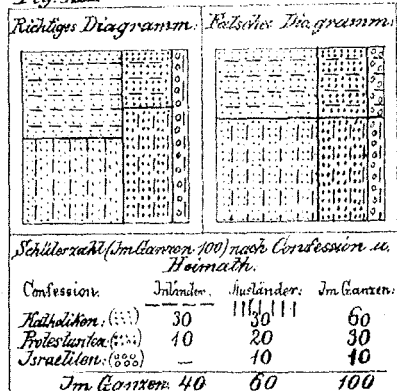 Richtiges Diagramm: Falsches Diagramm:
Schülerzahl (Im Ganzen 100) nach Confession u.
Heimath.
Confession. Inländer. Ausländer. Im Ganzen:
Katholiken: 30 30 60
Protestanten: 10 20 30
Israeliten: — 10 10
Im Ganzen 40 60 100